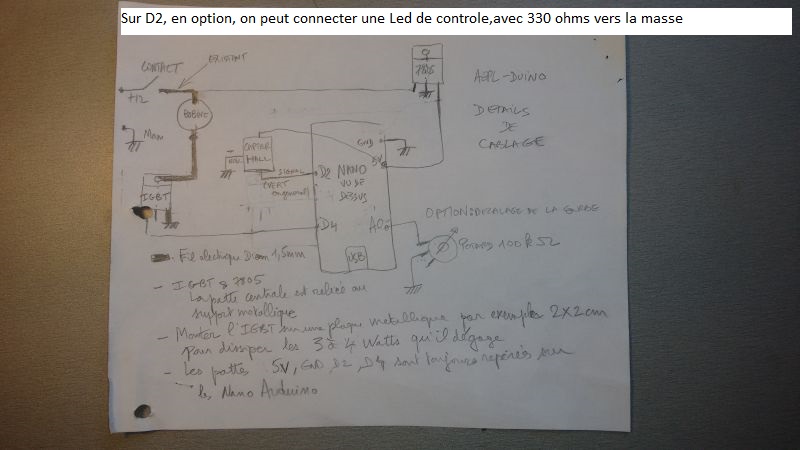 Sur D2, en option, on peut connecter une Led de controle,avec 330 ohms vers la masse
CONTACT
EXISTANT
+12
BOBINE
7805
AEPL-DUINO
DETAILS
DE
CABLAGE
CAPTEUR
HALL
SIGNAL
(VERT
en general)
GND
5V
D2 NANO
VU DE
DESSUS
IGBT
D4
A0
USB
OPTION: DECALAGE DE LA COURBE
POTARD 100k Ω
Fil electrique Diam 1,5mm
- IGBT & 7805
La patte centrale est reliée au
support metallique
- Monter l'IGBT sur une plaque metallique par exemple 2x2cm
pour dissiper les 3 à 4 Watts qu'il dégage
- Les pattes 5V, GND, D2, D4 sont toujours repérées sur
le Nano Arduino